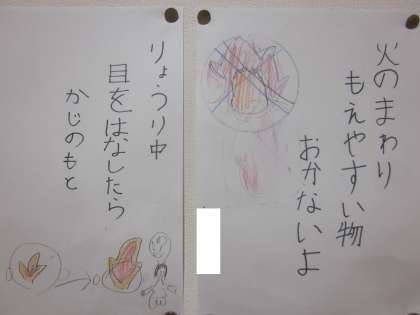 火のまわり
もえやすい物
おかないよ
りょうり中
目をはなしたら
かじのもと